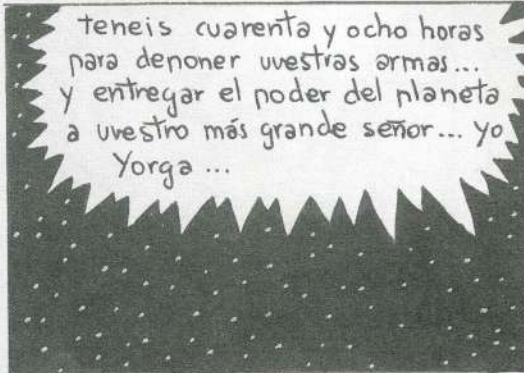 teneis cuarenta y ocho horas
para deponer uvestras armas...
y entregar el poder del planeta
a uvestro más grande señor... yo
Yorga ...